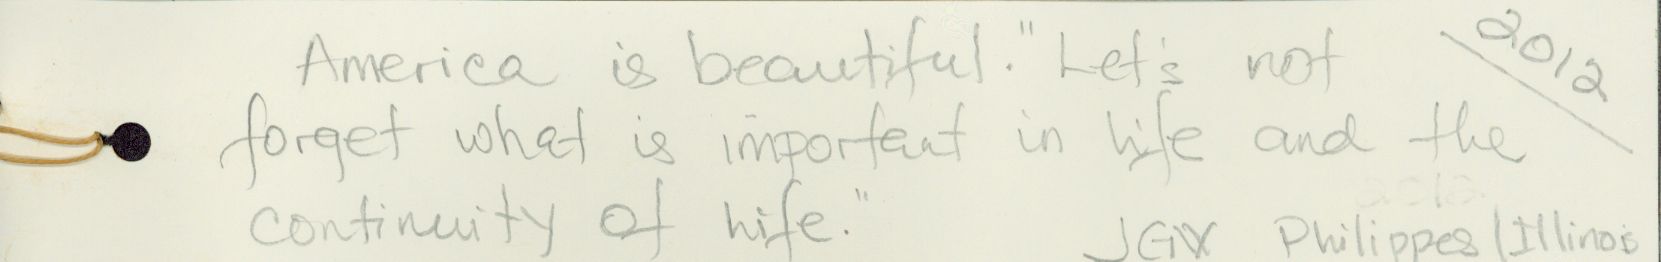 America is beautiful." Let's not
2012
forget what is important in life and the
continuity of life."
JGX Philippes/Illinois